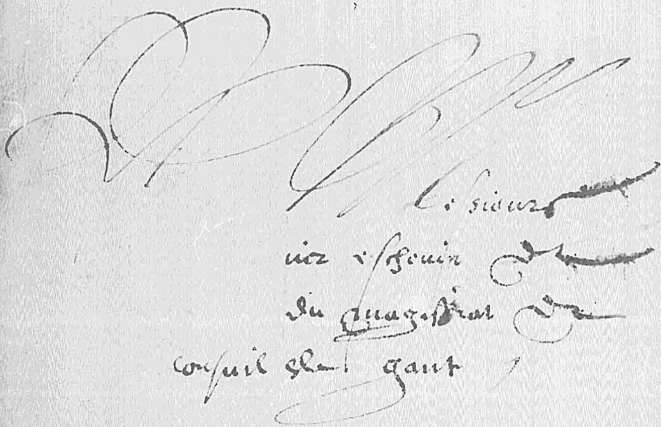 Le sieurs
ier eschevin de
du magistrat de
conseil de gant